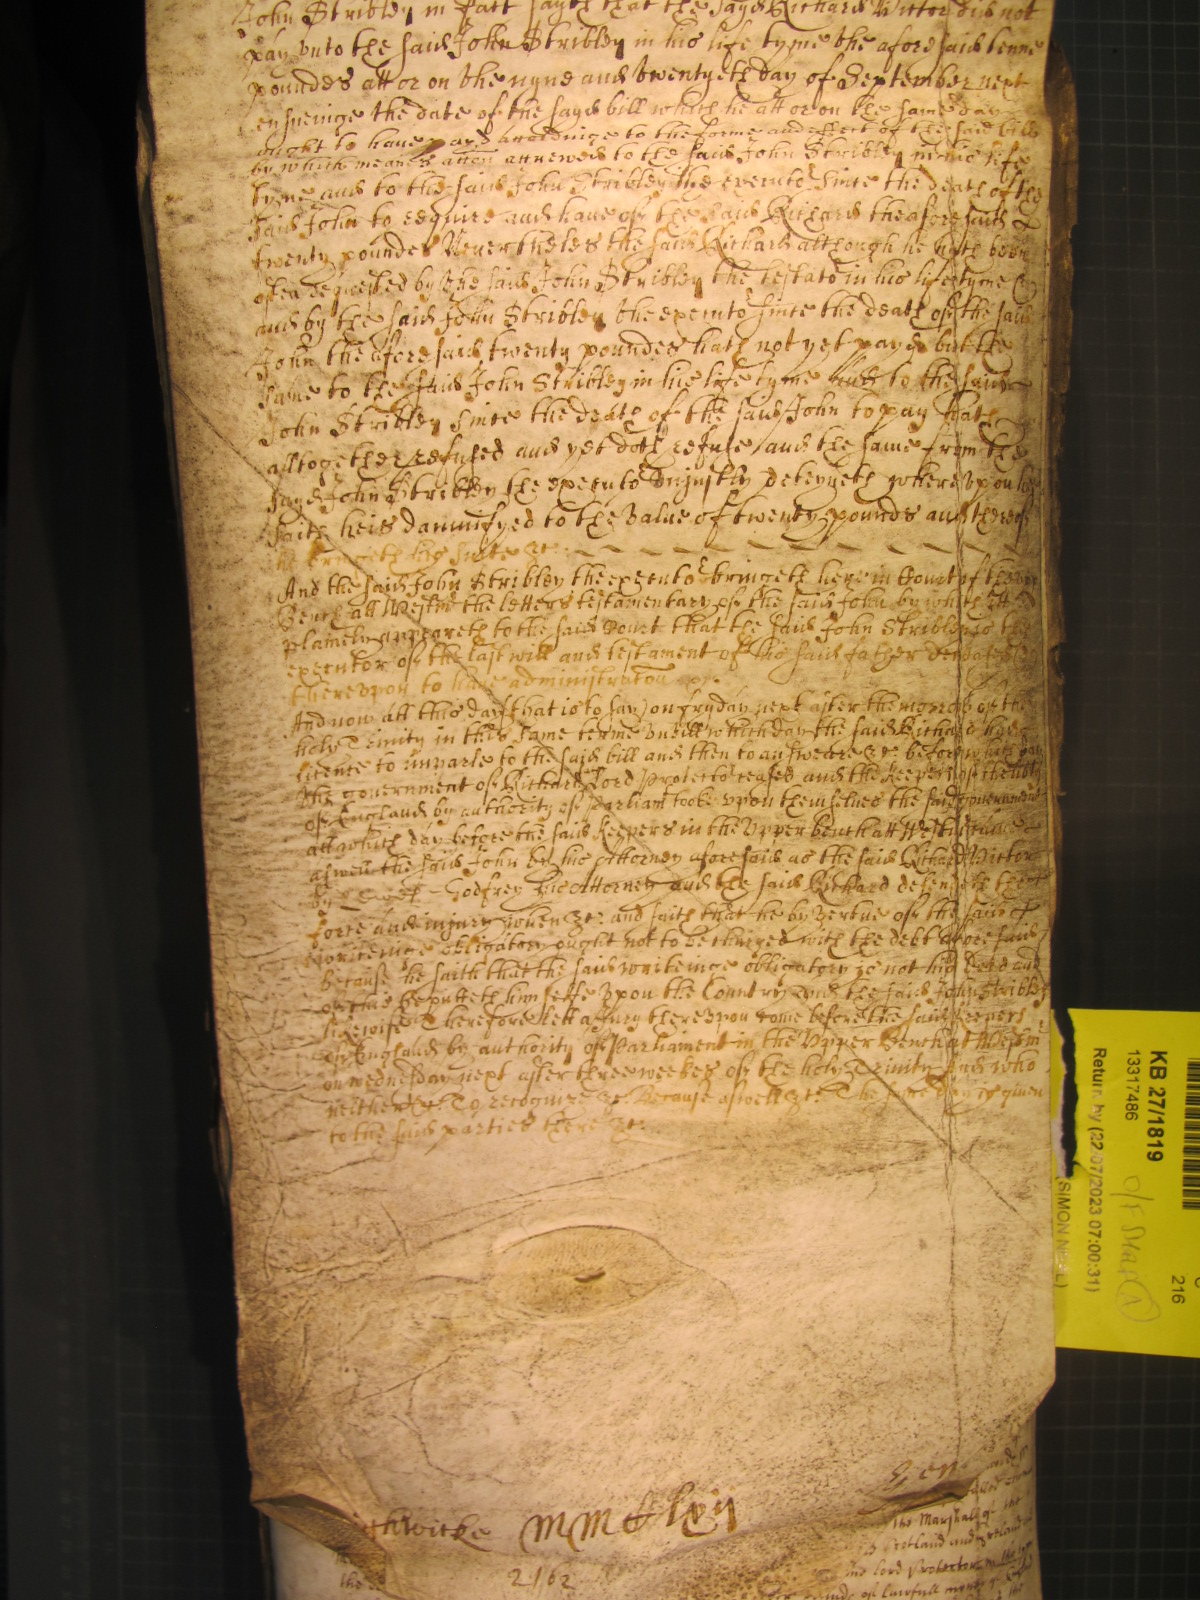 John Stribley in fact sayth that the sayd Richard Victor did not
pay unto the said John Stribley in his life tyme the afore said tenne
poundes att or on the nyne and twentyeth day of September next
ensueinge the date of the sayd bill which he att or on the same day
ought to have payd accordinge to the forme and effect of the said bill
by which meanes accon accrewed to the said John Stribley in his life
tyme and to the said John Stribley the executor since the death of the
said John to require and have of the said Richard the aforesaid
twenty poundes Nevertheles the said Richard although he hath been
often requested by the said John Stribley the testator in his life tyme
and by the said John Stribley the executor since the death of the said
John the aforesaid twenty poundes hath not yet payd but the
same to the said John Stribley in his life tyme and to the said
John Stribley since the death of the said John to pay hath
alltogether refused and yet doth refuse and the same from the
sayd John Stribley the executor unjustly deteyneth whereupon he
saith heis damnifyed to the value of twenty pounds and thereof
he bringeth his suite &c.
And the said John Stribley the executor bringeth here in Court of the upper
Bench att Westmr the letters testamentary of the said John by which itt
plainely appeareth to the said Court that the said John Stribley is the
executor of the last will and testament of his said father
thereupon to have administraton &c.
And now att this day that is to say on fryday next after the morrow of the
holy Trinity in this same terme untill which day the said Richard had
licence to imparle to the said bill and then to answeare &c. before which day
the government of Richard Lord Protector ceased and the keepers of the liberty
of England by authority of Parliamt tooke upon themselves the said government
att which day before the said keepers in the Upper bench att Westminster
aswell the said John by his Attorney aforesaid as the said Richard Victor
by Godfrey his Attorney and the said Richard defendeth the
force and injury when &c. and saith that he by vertue of the said
writeinge obligatory ought not to be charged with the debt aforesaid
because he saith that the said writeinge obligatory is not his deed and
of this he putteth him selfe upon the Country and the said John Stribley
likewise Therefore lett a Jury thereupon come before the said keepers
of England by authority of Parliament in the Upper Bench at Westmr
on wednesday next after three weekes of the holy Trinity And who
neither &c. To recognize &c. Because aswell &c. The same day is given
to the said parties there &c.
2162
the Marshall of the
Scotland and Ireland
lord Protector
of lawfull money of
KB 27/1819
13317486
Return by (22/07/2023 07:00:31)
216